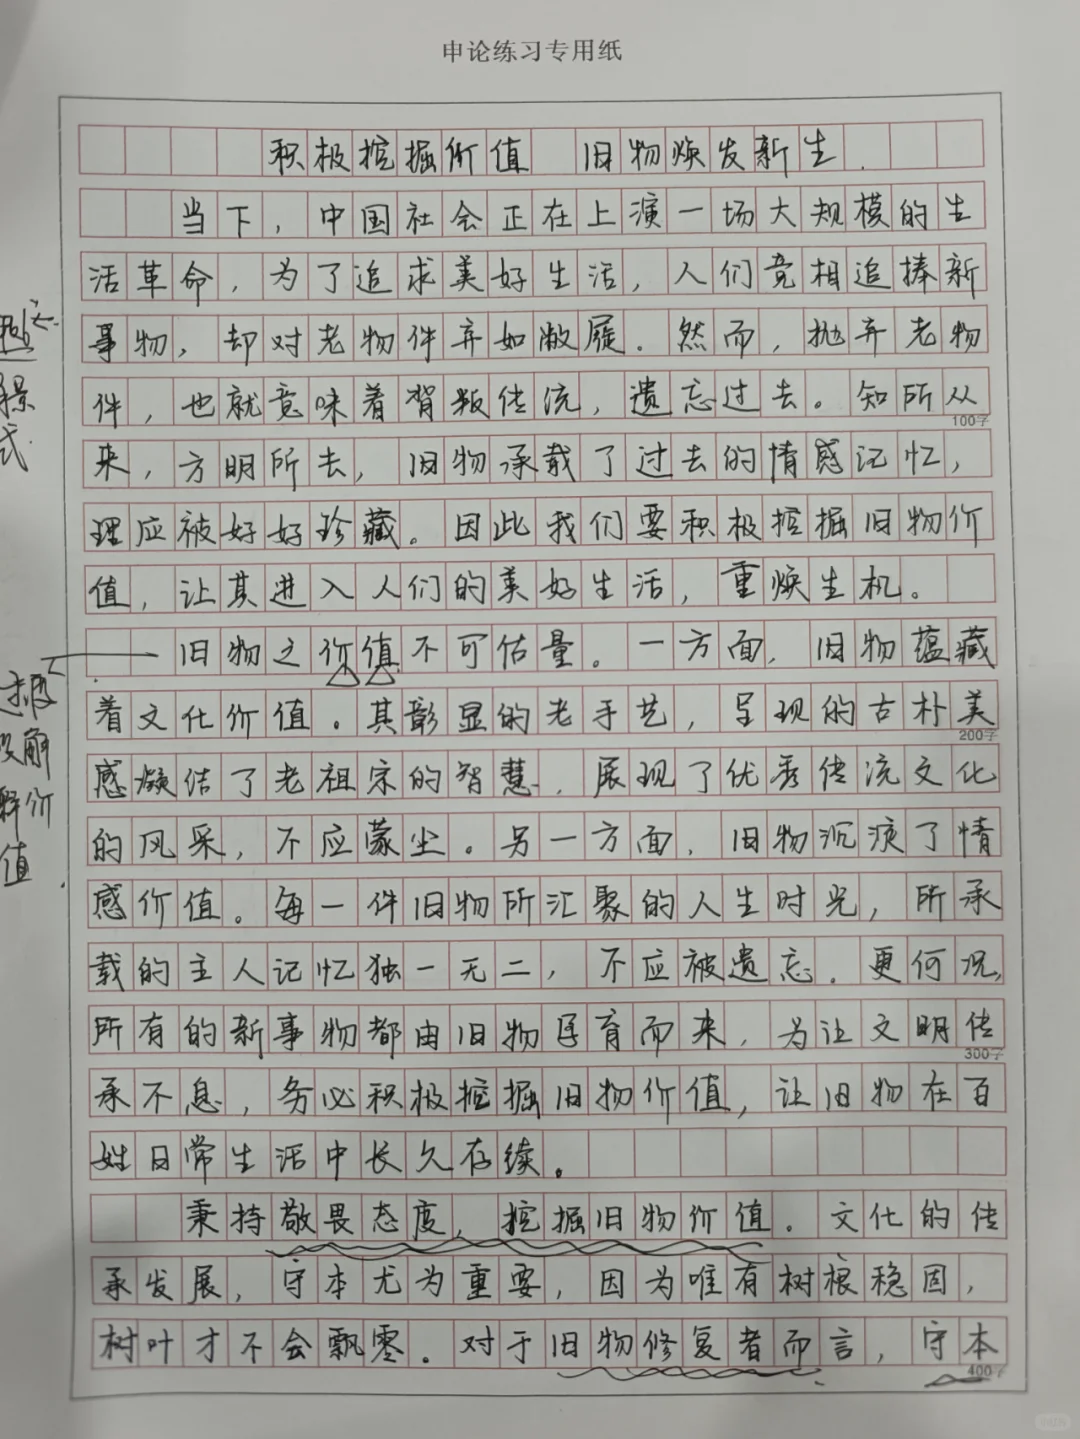 申论练习专用纸
积极挖掘价值 旧物焕发新生.
当下，中国社会正在上演一场大规模的生
活革命，为了追求美好生活，人们竞相追捧新
事物，却对老物件弃如敝屣．然而，抛弃老物
件，也就意味着背叛传统，遗忘过去。知所从
100字
来，方明所去，旧物承载了过去的情感记忆，
理应被好好珍藏。因此我们要积极挖掘旧物价
值，让其进入人们的美好生活，重焕生机。
旧物之价值不可估量。一方面，旧物蕴藏
着文化价值．其彰显的老手艺，呈现的古朴美
200字
感凝结了老祖宗的智慧，展现了优秀传流文化
的风采，不应蒙尘。另一方面，旧物沉淀了情
感价值。每一件旧物所汇聚的人生时光，所承
载的主人记忆独一无二，不应被遗忘．更何况，
所有的新事物都由旧物孕育而来，为让文明传
300字
承不息，务必积极挖掘旧物价值，让旧物在百
姓日常生活中长久存续。
秉持敬畏态度，挖掘旧物价值。文化的传
承发展，守本尤为重要，因为唯有树根稳固，
树叶才不会飘零。对于旧物修复者而言，守本
400字
景
式
解
释价
值.